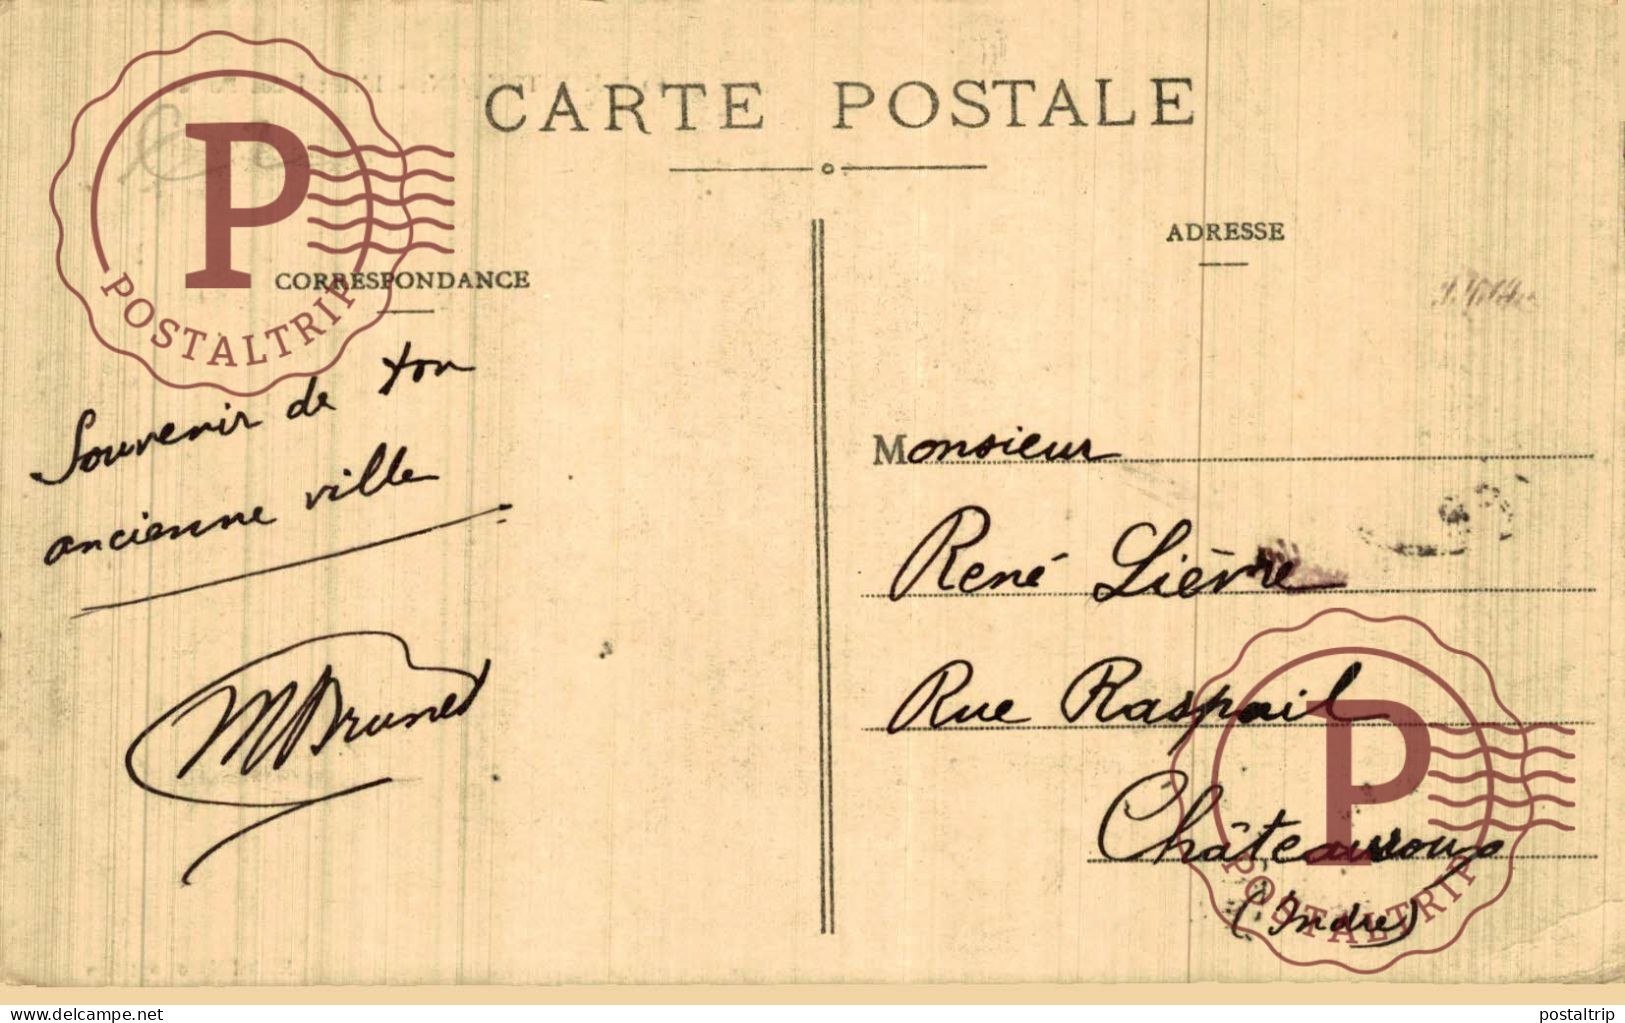 CARTE POSTALE
CORRESPONDANCE
ADRESSE
Souvenir de ton
ancienne ville
MBrunet
Monsieur
René Lièvre
Rue Raspail
Châteauroux
(Indre)
P
POSTALTRIP
P
POSTALTRIP
www.delcampe.net
postaltrip